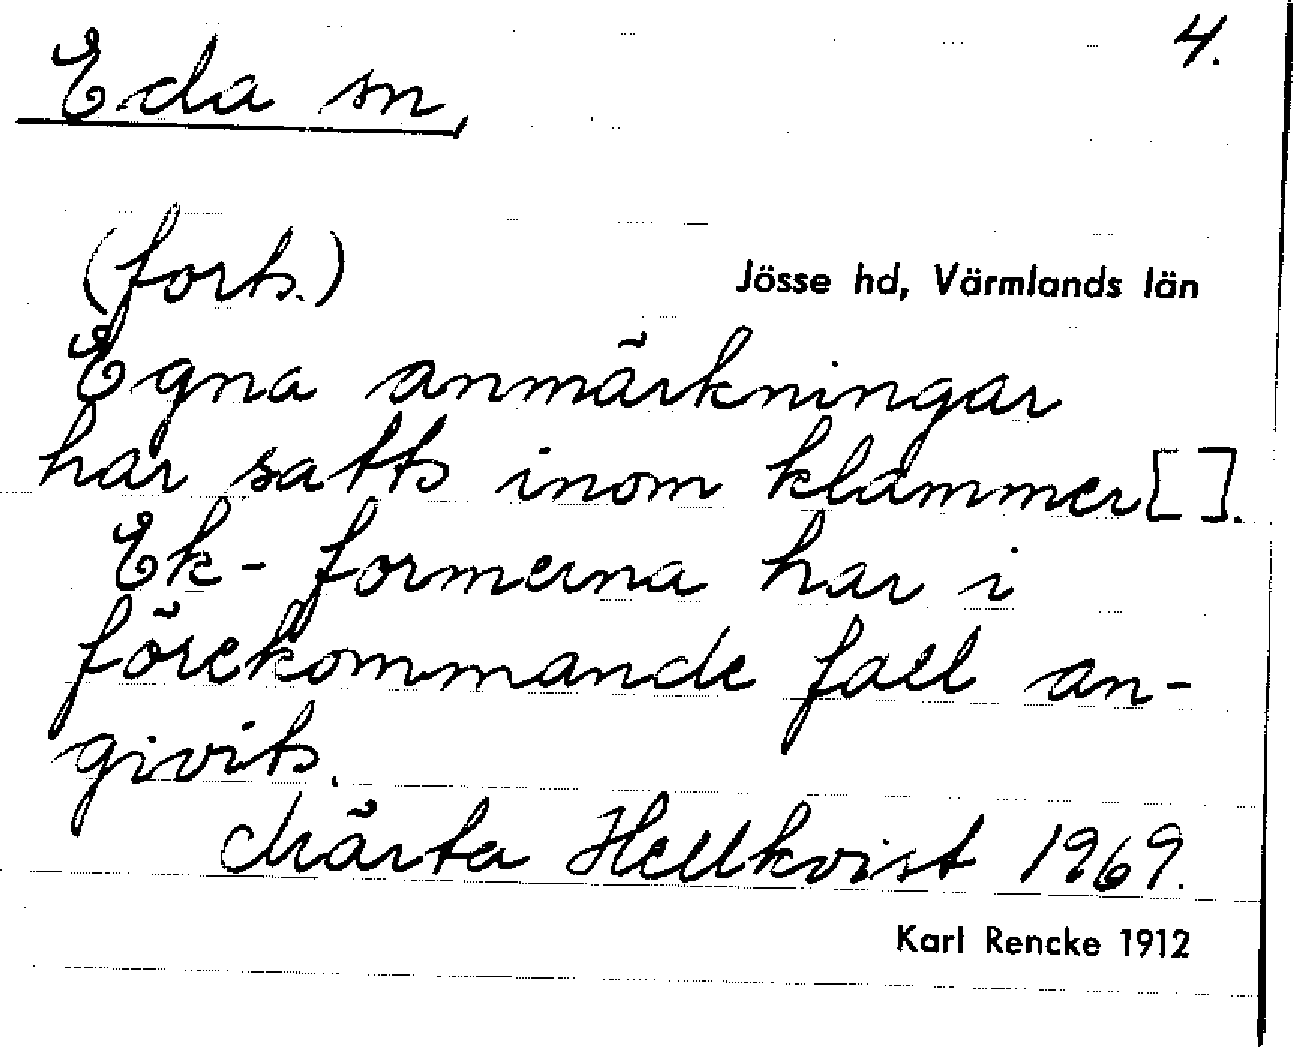 4.
Eda sn,
(forts.)
Jösse hd, Värmlands län
Egna anmärkningar
har satts inom klammer [ ].
Ek-formerna har i
förekommande fall an-
givits.
Märta Hellkvist 1969.
Karl Rencke 1912